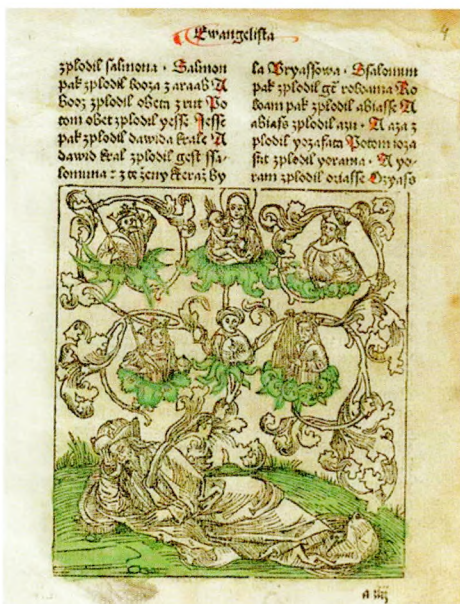 Ewangelista
4
zplodil salmona · Salmon
pak zplodil booza z araab A
booz zplodil obeta z rut Po
tom obet zplodil yesse Jesse
pak zplodil dawida krale A
dawid kral zplodil gest ssa-
lomuna : z te ženy kteraž by
la Vryassowa · Ssalomun
pak zplodil gt̄ roboama Ro
boam pak zplodil abiasse A
abiass zplodil azu · A aza z
plodil yozafata Potom ioza
fat zplodil yorama · A yo-
ram zplodil oziasse Ozyass
a iiij